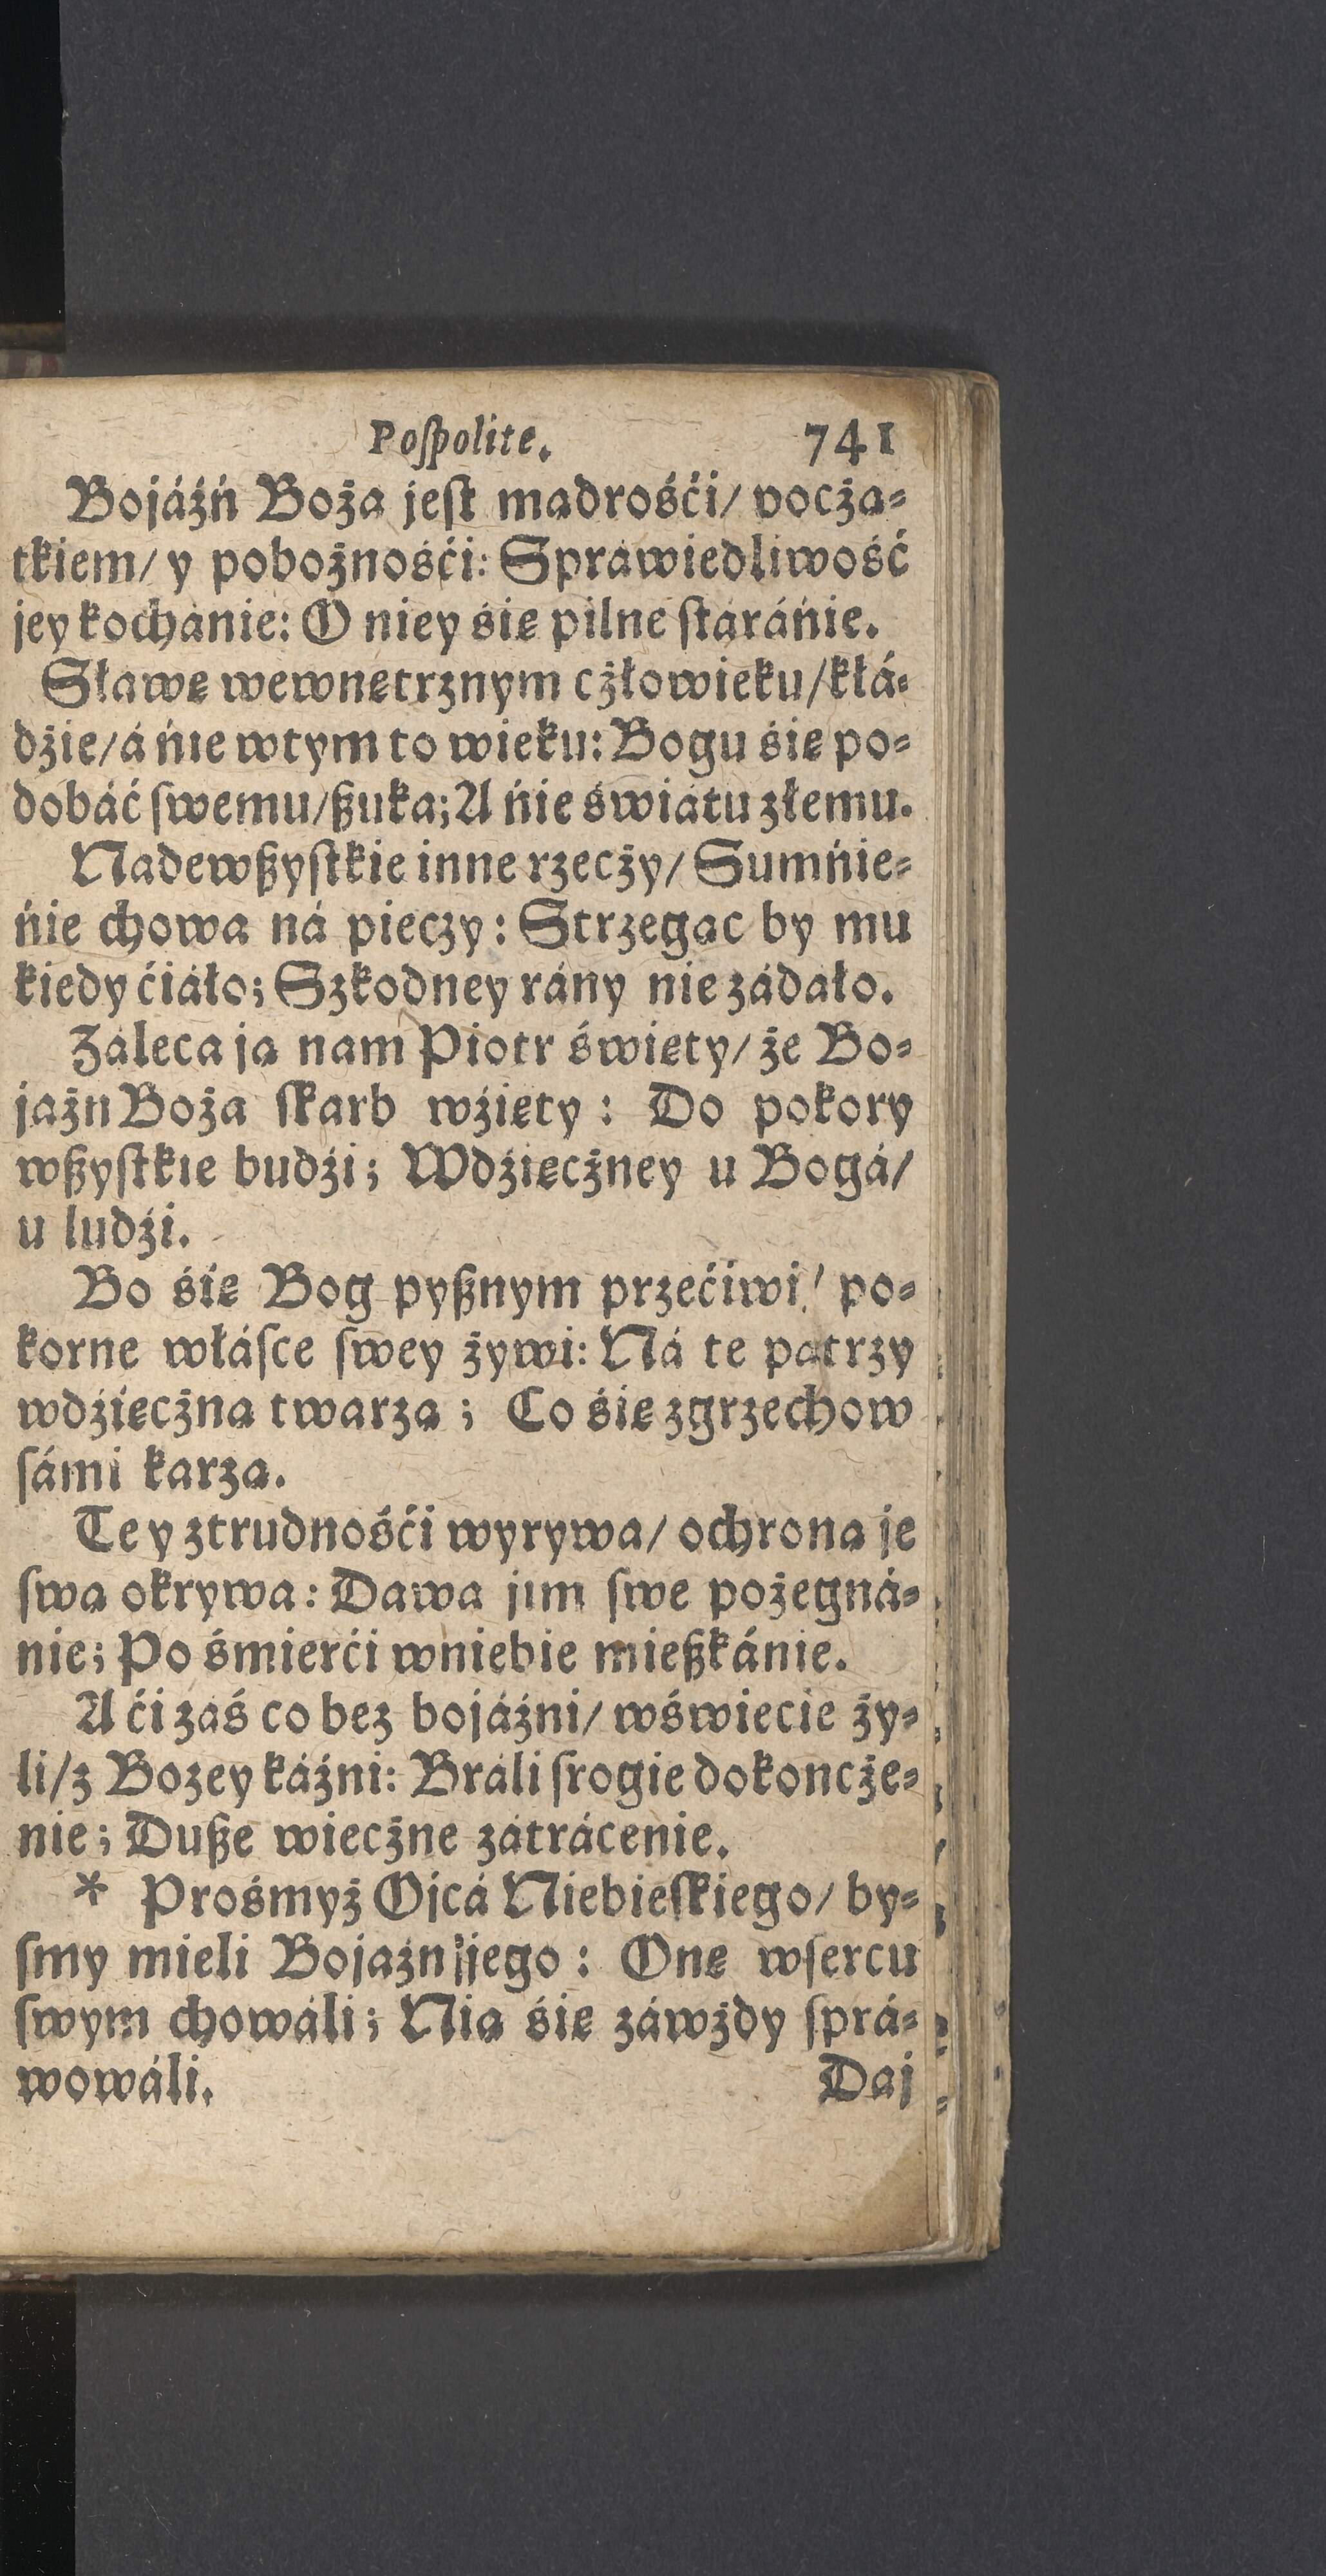 Poſpolite. 741
Bojáźń Boża jeſt mądrośći/ począ-
tkiem/ y pobożnośći: Spráwiedliwość
jey kochánie: O niey śię pilne ſtáráńie.
Sławę wewnętrznym człowieku/ kłá-
dźie/ á ńie wtym to wieku: Bogu śię po-
dobáć ſwemu/ ßuka; A ńie świátu złemu.
Nadewßyſtkie inne rzeczy/ Sumńie-
ńie chowa ná pieczy: Strzegąc by mu
kiedy ćiáło; Szkodney rány nie zádáło.
Záleca ją nam Piotr święty/ że Bo-
jaźn Boża ſkarb wźięty: Do pokory
wßyſtkie budźi; Wdźięczney u Bogá/
u ludźi.
Bo śię Bog pyßnym przećiwi/ po-
korne włáſce ſwey żywi: Ná te pátrzy
wdźięczną twarzą; Co śię zgrzechow
ſámi karzą.
Te y ztrudnośći wyrywa/ ochroną je
ſwą okrywa: Dawa jim ſwe pożegná-
nie; Po śmierći wniebie mießkánie.
A ći záś co bez bojáźni/ wświecie ży-
li/ z Bozey káźni: Bráli ſrogie dokoncze-
nie; Duße wieczne zátrácenie.
* Prośmyż Ojcá Niebieſkiego/ by-
ſmy mieli Bojaźn jego: Onę wſercu
ſwym chowáli; Nią śię záwżdy ſprá-
wowáli. Daj